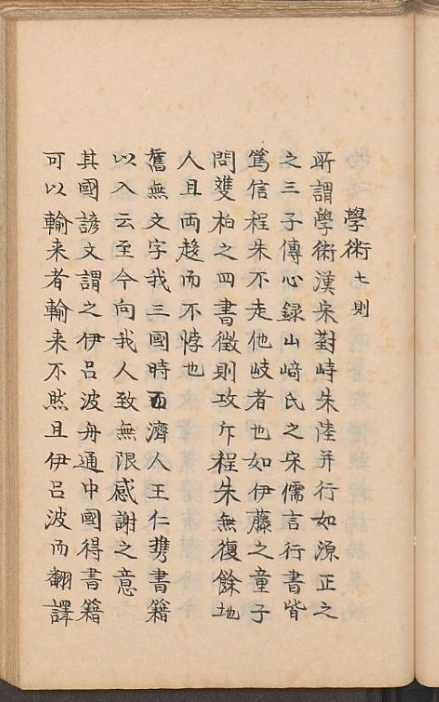 學術七則
所謂學術漢宋對峙朱陸并行如源正之
之三子傳心録山﨑氏之宋儒言行書皆
篤信程朱不走他岐者也如伊藤之童子
問雙栢之四書徵則攻斥程朱無復餘地
人且両趍而不悖也
舊無文字我三國時百濟人王仁携書籍
以入云至今向我人致無限感謝之意
其國諺文謂之伊呂波舟通中國得書籍
可以輸来者輸来不然且伊呂波而翻譯